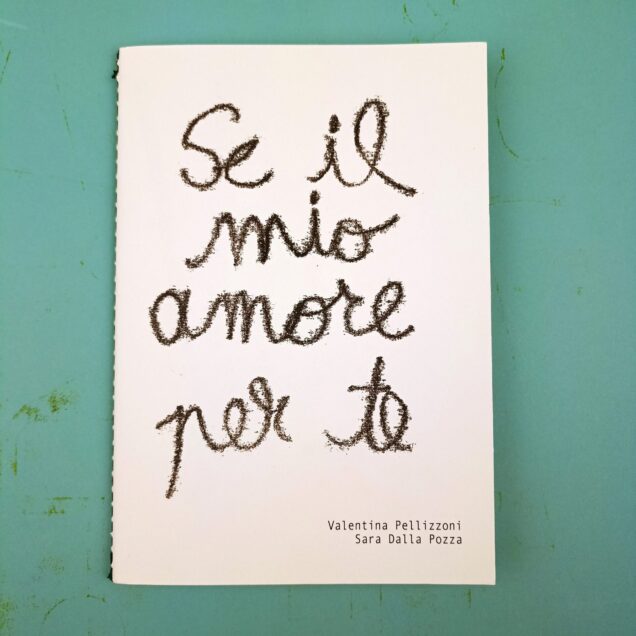 Se il
mio
amore
per te
Valentina Pellizzoni
Sara Dalla Pozza